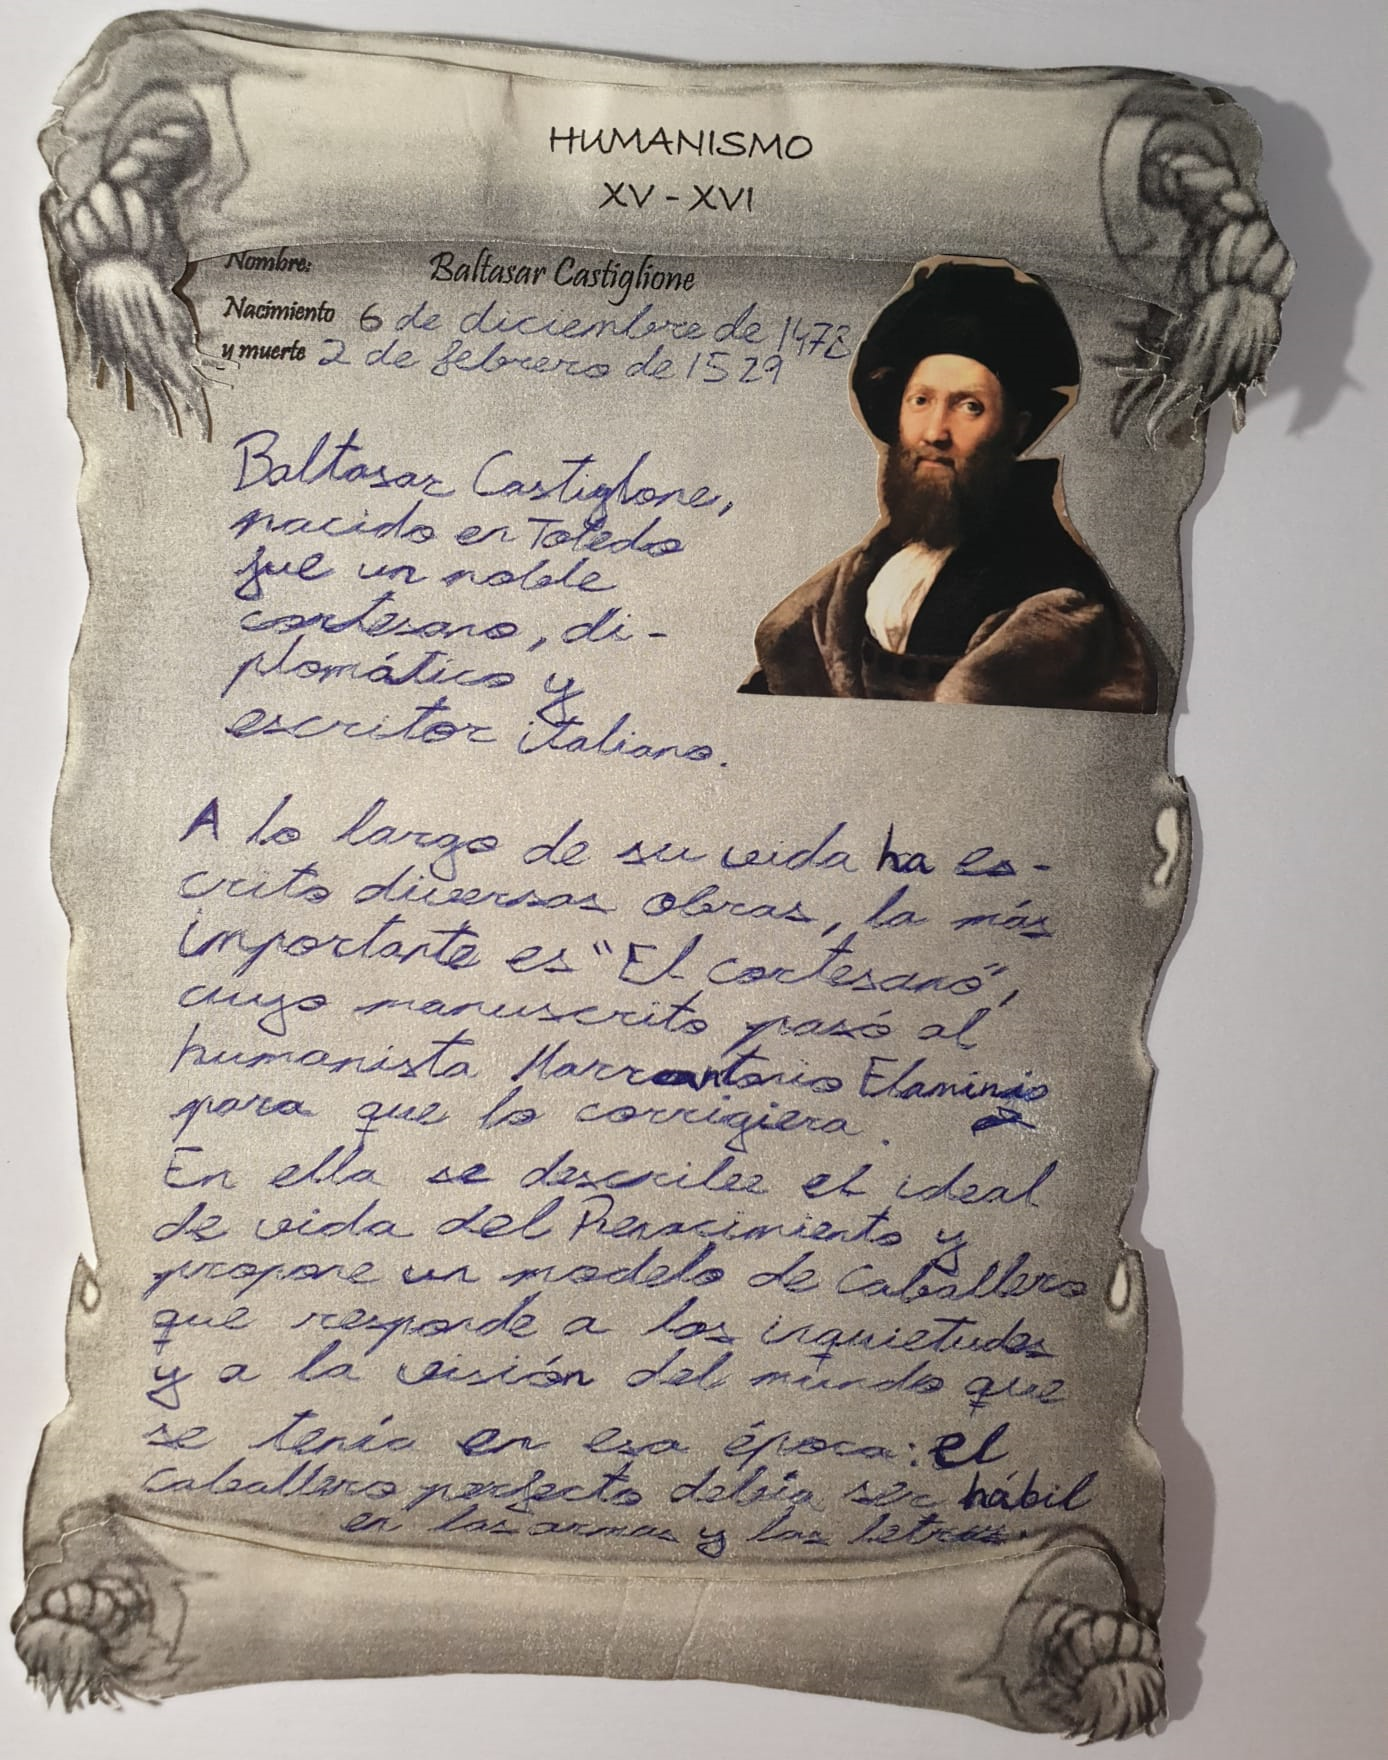 HUMANISMO
XV - XVI
Nombre: Baltasar Castiglione
Nacimiento 6 de diciembre de 1478
y muerte 2 de febrero de 1529
Baltasar Castiglone,
nacido en Toledo
fue un noble
cortesano, di-
plomático y
escritor italiano.
A lo largo de su vida ha es-
crito diversas obras, la más
importante es "El cortesano",
cuyo manuscrito pasó al
humanista Marcoantonio Flaminio
para que lo corrigiera.
En ella se describe el ideal
de vida del Renacimiento y
propone un modelo de Caballero
que responde a las inquietudes
y a la visión del mundo que
se tenía en esa época: el
caballero perfecto debía ser hábil
en las armas y las letras.